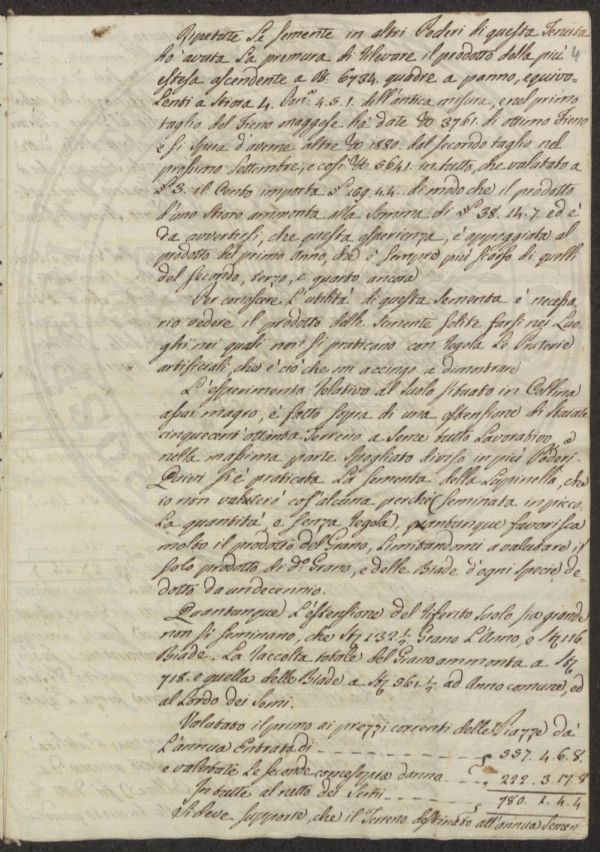 Ripetute Le Semente in altri Poderi di questa Tenuta 4
ho avuta La premura di rilevare il prodotto della più
estesa ascendente a B. 6734. quadre a panno, equiva-
lenti a Stiora 4. Pan. 4. 5. 1. dell'antica misura, e nel primo
taglio del Fieno maggese ha date 3761. di ottimo Fieno
e si spera d'averne altre 1880. dal secondo taglio nel
prossimo Settembre, e così 5641. in tutto, che valutato a
3. il Cento importa 169. 4. 4. di modo che il prodotto
d'uno Stioro ammonta alla Somma di 38. 14. 7. ed è
da avvertirsi, che questa esperienza, è appoggiata al
prodotto del primo anno, che è sempre più scarso di quelli
del Secondo, terzo, e quarto ancora
Per conoscere L'utilità di questa Sementa è necessa
rio vedere il prodotto delle Semente solite farsi nei Luo-
ghi nei quali non si praticano con regola Le Praterie
artificiali, che è ciò che mi accingo a dimostrare
L'esperimento relativo al Suolo situato in Collina
assai magro, è fatto sopra di una estensione di Staiate
cinquecent'ottanta Terreno a Seme tutto Lavorativo, e
nella massima parte spogliato diviso in più Poderi.
Quivi si è praticata La Sementa della Lupinella, che
io non valuterò cos'alcuna perché (seminata in picco-
la quantità e senza regola), quantunque favorisca
molto il prodotto del Grano, Limitandomi a valutare il
solo prodotto di d.° Grano, e delle Biade d'ogni specie de-
dotto da un decennio.
Quantunque L'estensione del riferito Suolo sia grande
non si seminano, che 132 1/2 Grano L'Anno e 116
Biade. La raccolta totale del Grano ammonta a
718. e quella delle Biade a 561 1/2 ad Anno comune, ed
al Lordo dei Semi.
Valutato il primo ai prezzi correnti delle Piazze dà
L'annua Entrata di 557. 4. 6. 8.
e valutate Le seconde come sopra danno 222. 3. 17. 8
In tutte al netto dei Semi 780. 1. 4. 4
Si deve supporre, che il Terreno destinato all'annua Semen